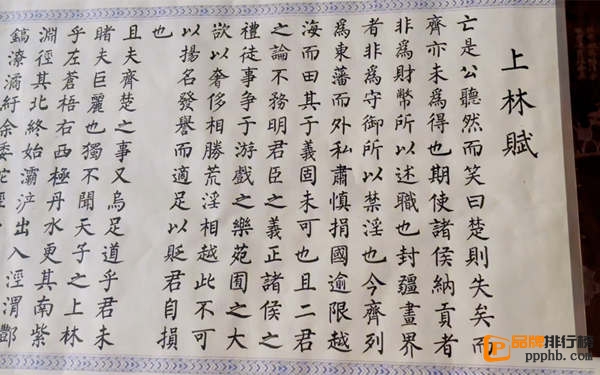 上林賦
亡是公聽然而笑曰楚則失矣而
齊亦未爲得也期使諸侯納貢者
非爲財幣所以述職也封疆畫界
者非爲守御所以禁淫也今齊列
爲東藩而外私肅慎捐國逾限越
海而田其于義固未可也且二君
之論不務明君臣之義正諸侯之
禮徒事爭于游戲之樂苑囿之大
欲以奢侈相勝荒淫相越此不可
以揚名發譽而適足以貶君自損
也
且夫齊楚之事又烏足道乎君未
睹夫巨麗也獨不聞天子之上林
乎左蒼梧右西極丹水更其南紫
淵徑其北終始灞浐出入涇渭酆
鎬潦潏紆余委蛇
品牌排行榜
ppphb.com